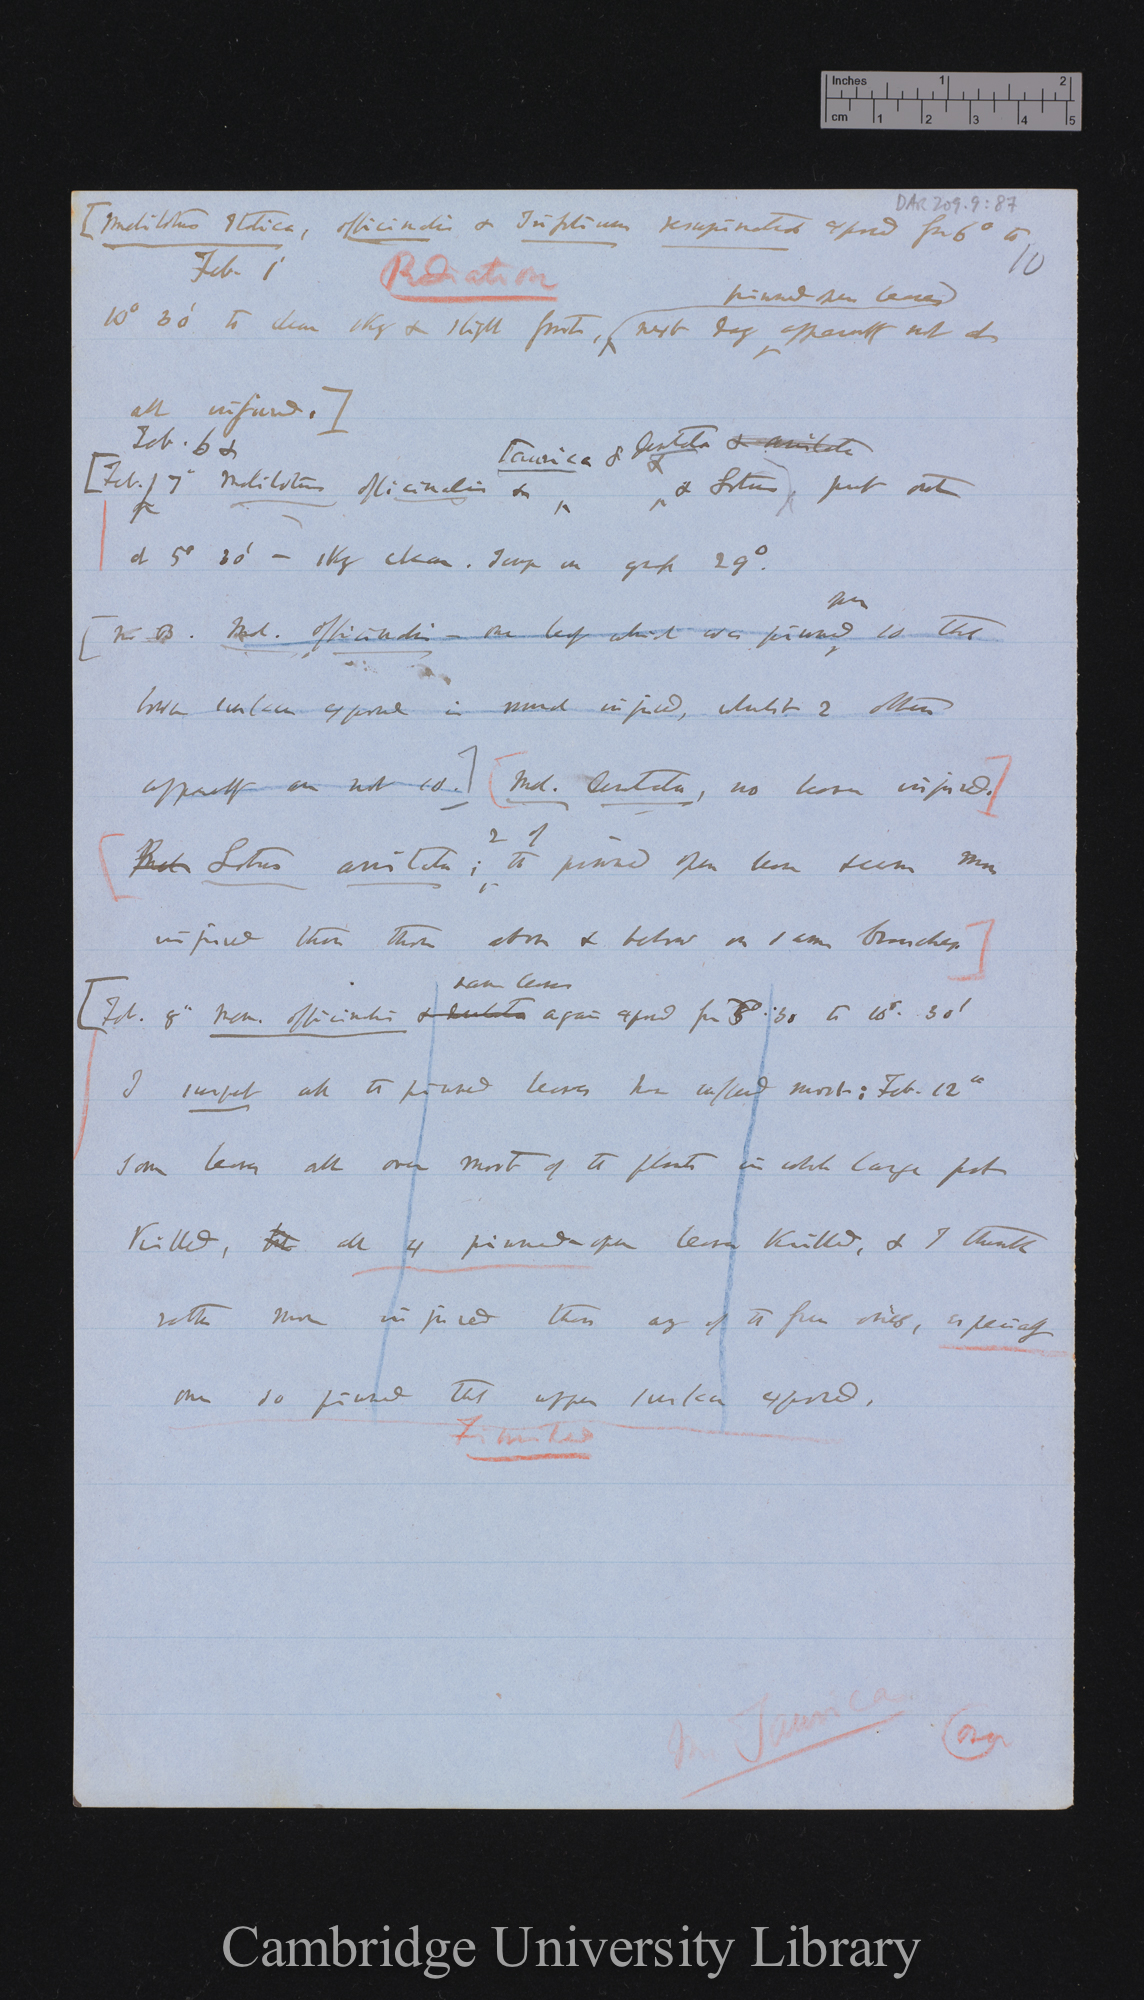 Inches 1 2
cm 1 2 3 4 5
DAR 209.9:87
[Melilotus Italica, officinalis & Trifolium resupinatum exposed from 6° to
10
Feb. 1st
Radiation
pinned open leaves
10° 30' to clear sky & slight frost, (next day apparently not at
all injured.]
Feb. 6 &
Taurica & dentata & aristata
[Feb. 7th Melilotus officinalis & & Lotus, put out
at 5° 30' — sky clear. Temp on grass 29°.
open
[N.B. Mel. officinalis — one leaf which was pinned so that
lower surface exposed is much injured, whilst 2 others
apparently are not so.] [Mel. dentata, no leaves injured.]
2 of
[Lotus aristata; the pinned open leaves seem more
injured than those above & below on same branches]
same leaves
[Feb. 8th Mem. officinalis & dentata again exposed from 8°.30 to 10°. 30'
I suspect all the pinned leaves have suffered most: Feb. 12th
Some leaves all over most of the plants in whole large pot
killed, but all 4 pinned-open leaves killed, & I think
rather more injured than any of the free ones, especially
one so pinned that upper surface exposed.
Finished
M. Taurica
Over
Cambridge University Library